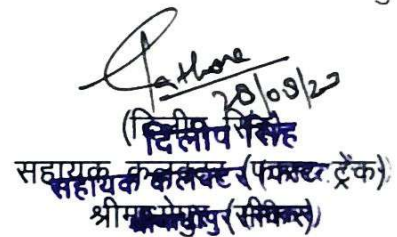 Rathore
28/09/20
(दिलीप सिंह)
सहायक कलक्टर (फास्ट ट्रेक)
श्रीमाधोपुर (सीकर)